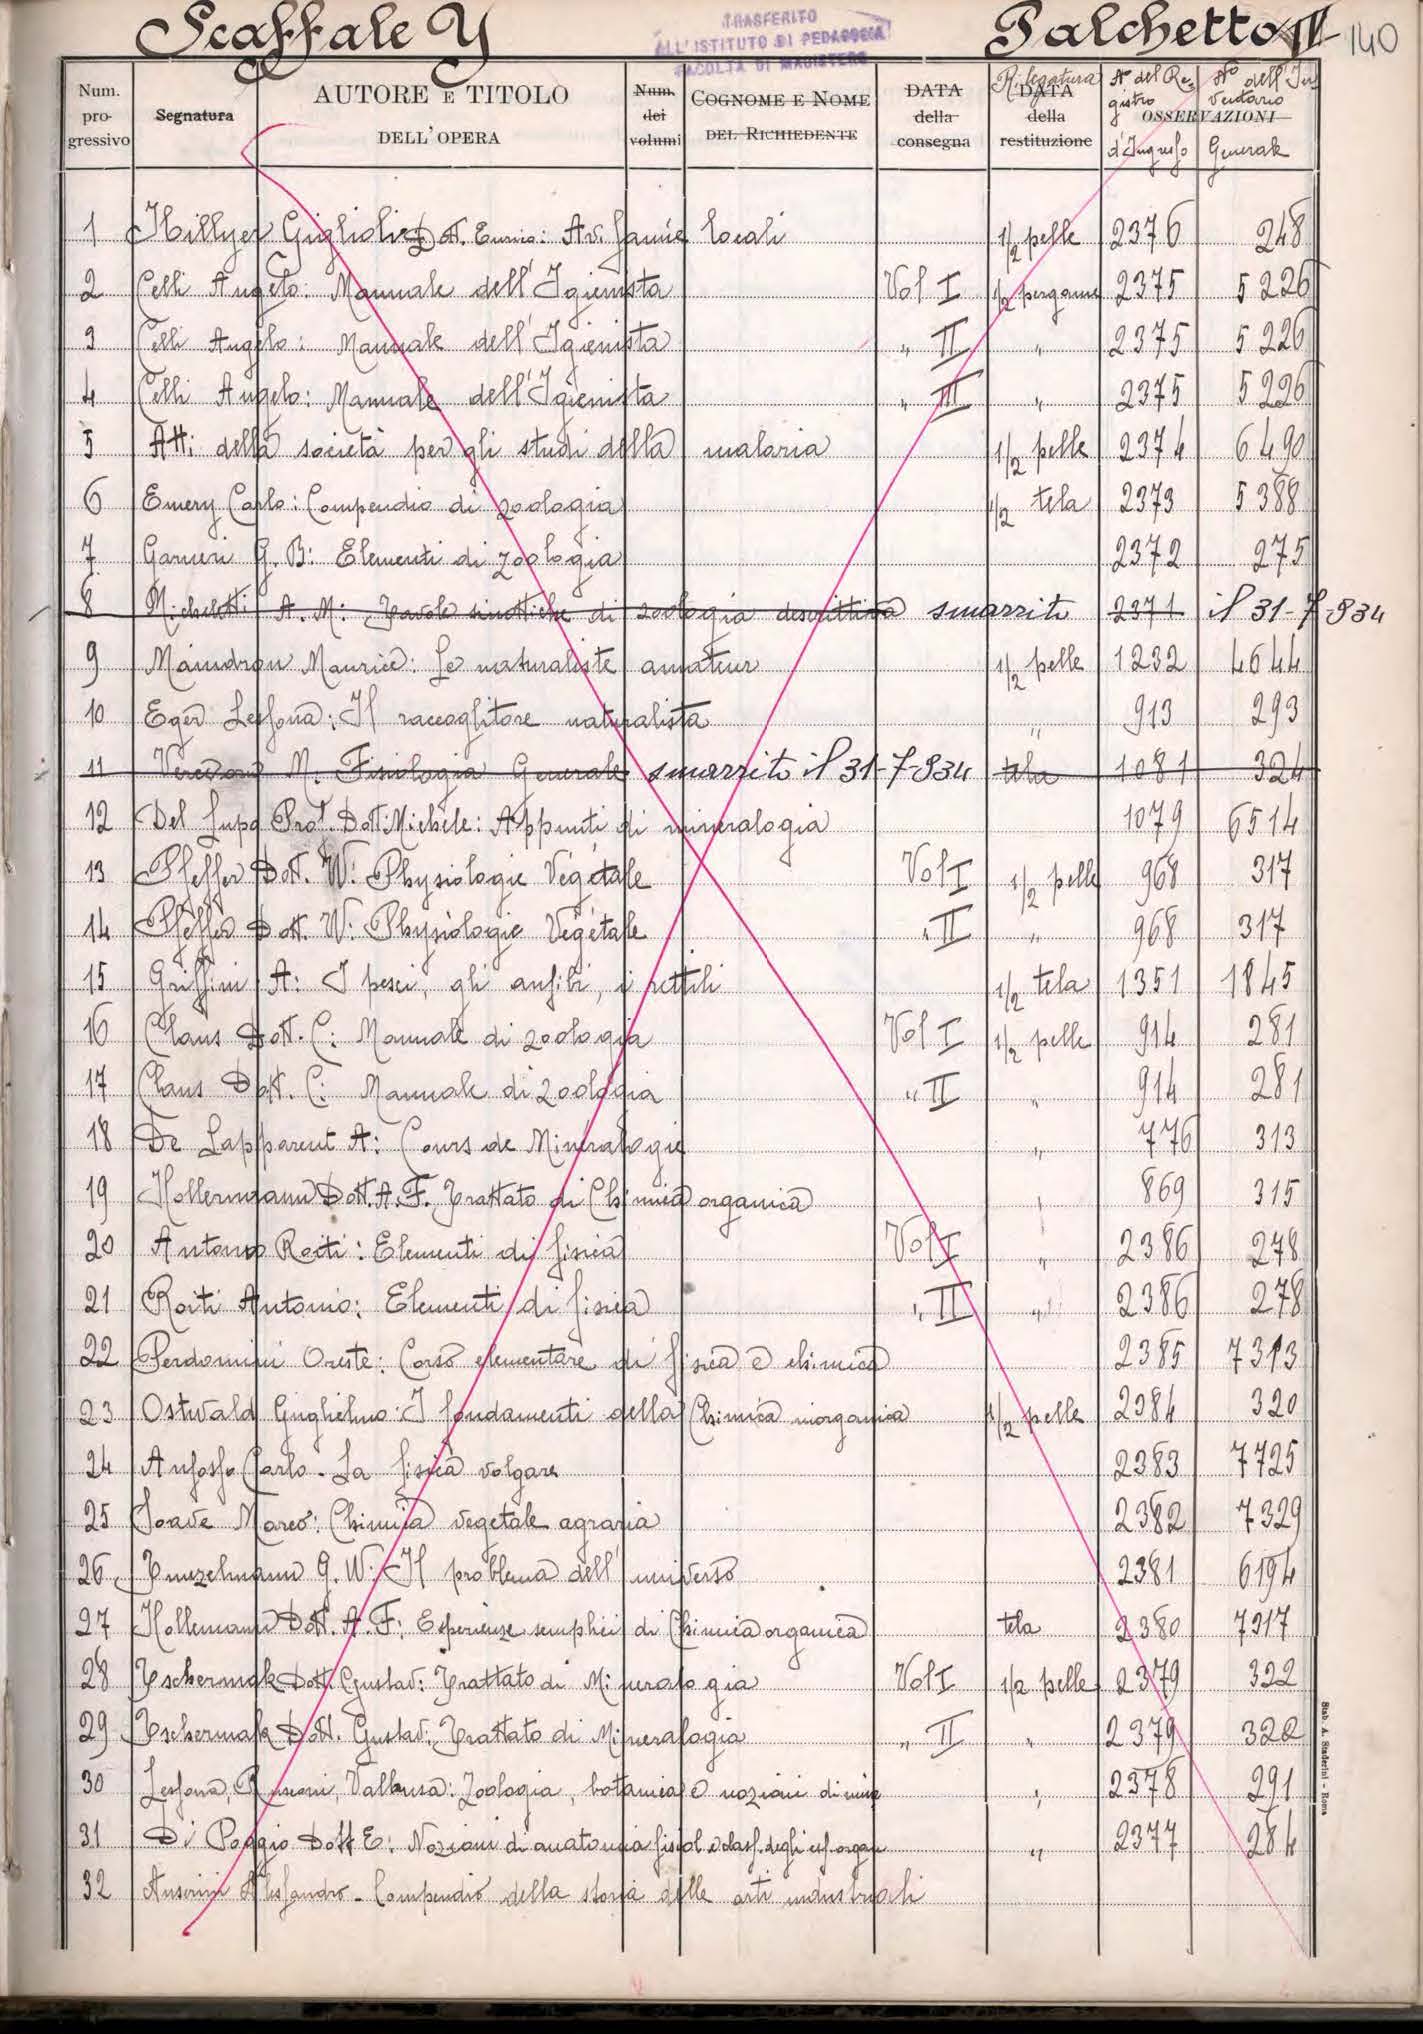 Scaffale Y Palchetto IV 140
TRASFERITO
ALL'ISTITUTO DI PEDAGOGIA
FACOLTA DI MAGISTERO
Num. progressivo Segnatura AUTORE E TITOLO DELL'OPERA Num. dei volumi COGNOME E NOME DEL RICHIEDENTE DATA della consegna Rilegatura DATA della restituzione OSSERVAZIONI No del Registro d'Ingresso No dell'Inventario Generale
1 Hillyer Giglioli Dott. Enrico: Avifaune locali 1/2 pelle 2376 248
2 Celli Angelo: Manuale dell'Igienista Vol I 1/2 pergame 2375 5226
3 Celli Angelo: Manuale dell'Igienista " II " 2375 5226
4 Celli Angelo: Manuale dell'Igienista " III " 2375 5226
5 Atti della società per gli studi della malaria 1/2 pelle 2374 6490
6 Emery Carlo: Compendio di zoologia 1/2 tela 2373 5388
7 G. B: Elementi di zoologia 2372 275
8 Micheletti A. M: Tavole sinottiche di zoologia descrittiva smarrito 2371 il 31-7-934
9 Maindron Maurice: Le naturaliste amateur 1/2 pelle 1232 4644
10 Eger Lessona: Il raccoglitore naturalista " 913 293
11 M. Fisiologia Generale smarrito il 31-7-934 tela 1081 324
12 Del Lupo Prof. Dott. Michele: Appunti di mineralogia 1079 6514
13 Pfeffer Dott. W: Physiologie Végétale Vol I 1/2 pelle 968 317
14 Pfeffer Dott. W: Physiologie Végétale " II " 968 317
15 Griffini A: I pesci, gli anfibi, i rettili 1/2 tela 1351 1845
16 Claus Dott. C: Manuale di zoologia Vol I 1/2 pelle 914 281
17 Claus Dott. C: Manuale di zoologia " II " 914 281
18 De Lapparent A: Cours de Mineralogie " 776 313
19 Hollermann Dott. A. F. Trattato di Chimica organica " 869 315
20 Antonio Roiti: Elementi di fisica Vol I " 2386 278
21 Roiti Antonio: Elementi di fisica " II " 2386 278
22 Perdomini Oreste: Corso elementare di fisica e chimica 2385 7313
23 Ostwald Guglielmo: I fondamenti della Chimica inorganica 1/2 pelle 2384 320
24 Anfosso Carlo - La fisica volgare 2383 7725
25 Soave Marco: Chimica vegetale agraria 2382 7329
26 G. W: Il problema dell'universo 2381 6194
27 Hollemann Dott. A. F: Esperienze semplici di Chimica organica tela 2380 7317
28 Tschermak Dott. Gustav: Trattato di Mineralogia Vol I 1/2 pelle 2379 322
29 Tschermak Dott. Gustav: Trattato di Mineralogia " II " 2379 322
30 Lessona, Valbusa: Zoologia, botanica e nozioni di mine " 2378 291
31 Di Poggio Dott E: Nozioni di anatomia fisiol. e class. degli es. organ " 2377 284
32 Alessandro - Compendio della storia delle arti industriali
Stab. A. Staderini - Roma